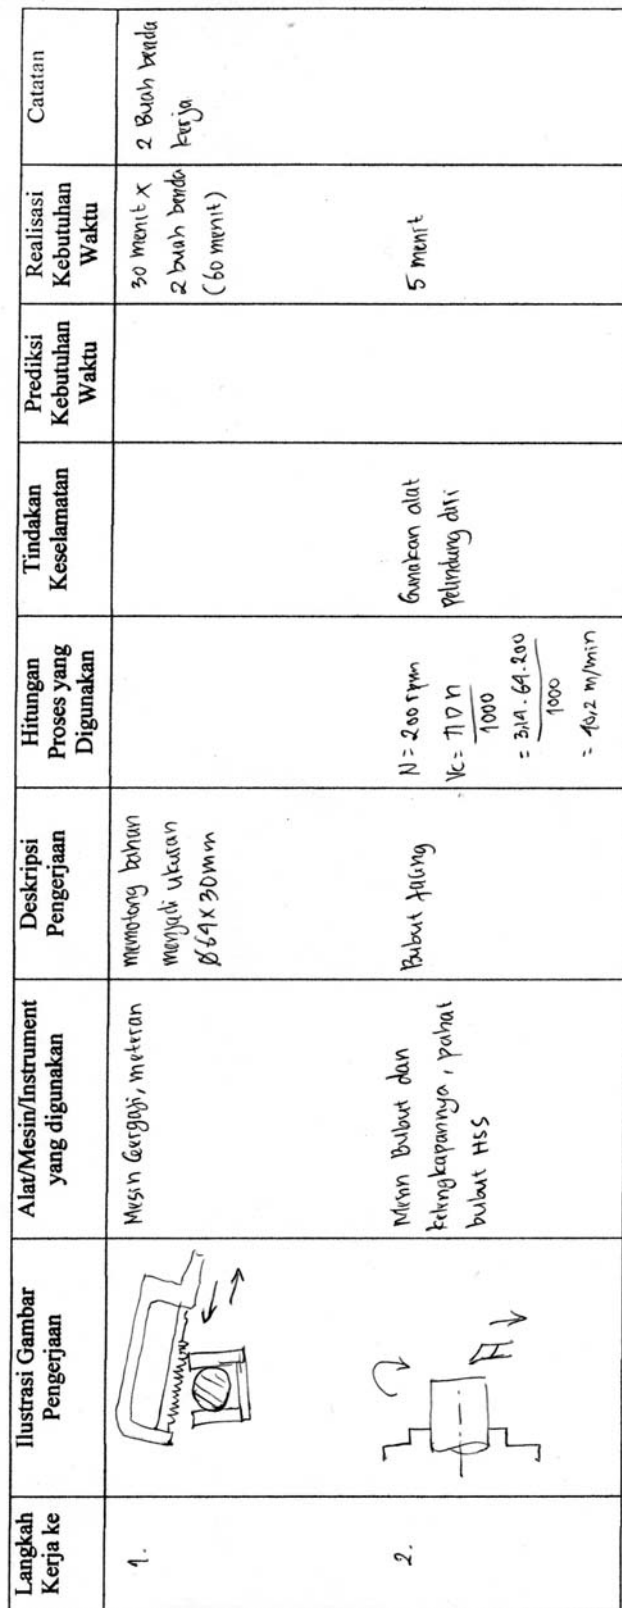 Langkah
Kerja ke
Ilustrasi Gambar
Pengerjaan
Alat/Mesin/Instrument
yang digunakan
Deskripsi
Pengerjaan
Hitungan
Proses yang
Digunakan
Tindakan
Keselamatan
Prediksi
Kebutuhan
Waktu
Realisasi
Kebutuhan
Waktu
Catatan
1.
Mesin Gergaji, meteran
memotong bahan
menjadi ukuran
Ø64 x 30mm
30 menit x
2 buah benda
(60 menit)
2 Buah benda
kerja
2.
Mesin Bubut dan
kelengkapannya, pahat
bubut HSS
Bubut facing
N = 200 rpm
Vc = π D n
1000
= 3,14 . 64 . 200
1000
= 40,2 m/min
Gunakan alat
pelindung diri
5 menit